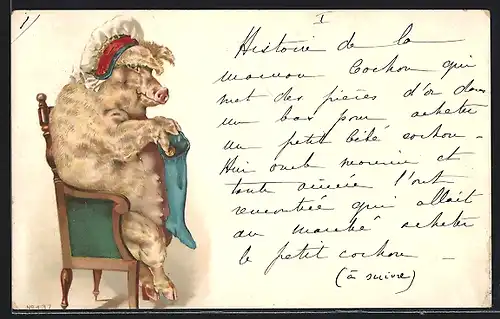 1/
I
Histoire de la
maman Cochon qui
met des pièces d'or dans
un bas pour acheter
un petit bébé cochon –
et
toute l'ont
rencontrée qui allait
au marché acheter
le petit cochon –
(à suivre)